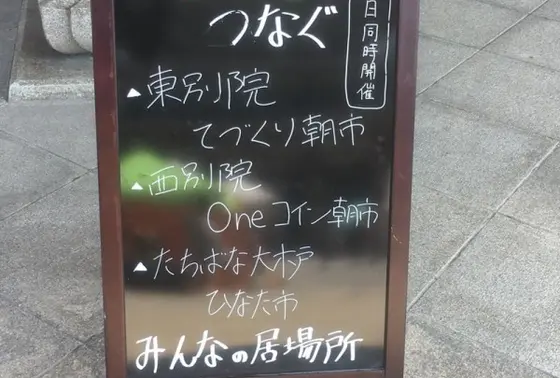 つなぐ
日同時開催
▲東別院
てづくり朝市
▲西別院
Oneコイン朝市
▲たちばな大木戸
ひなた市
みんなの居場所